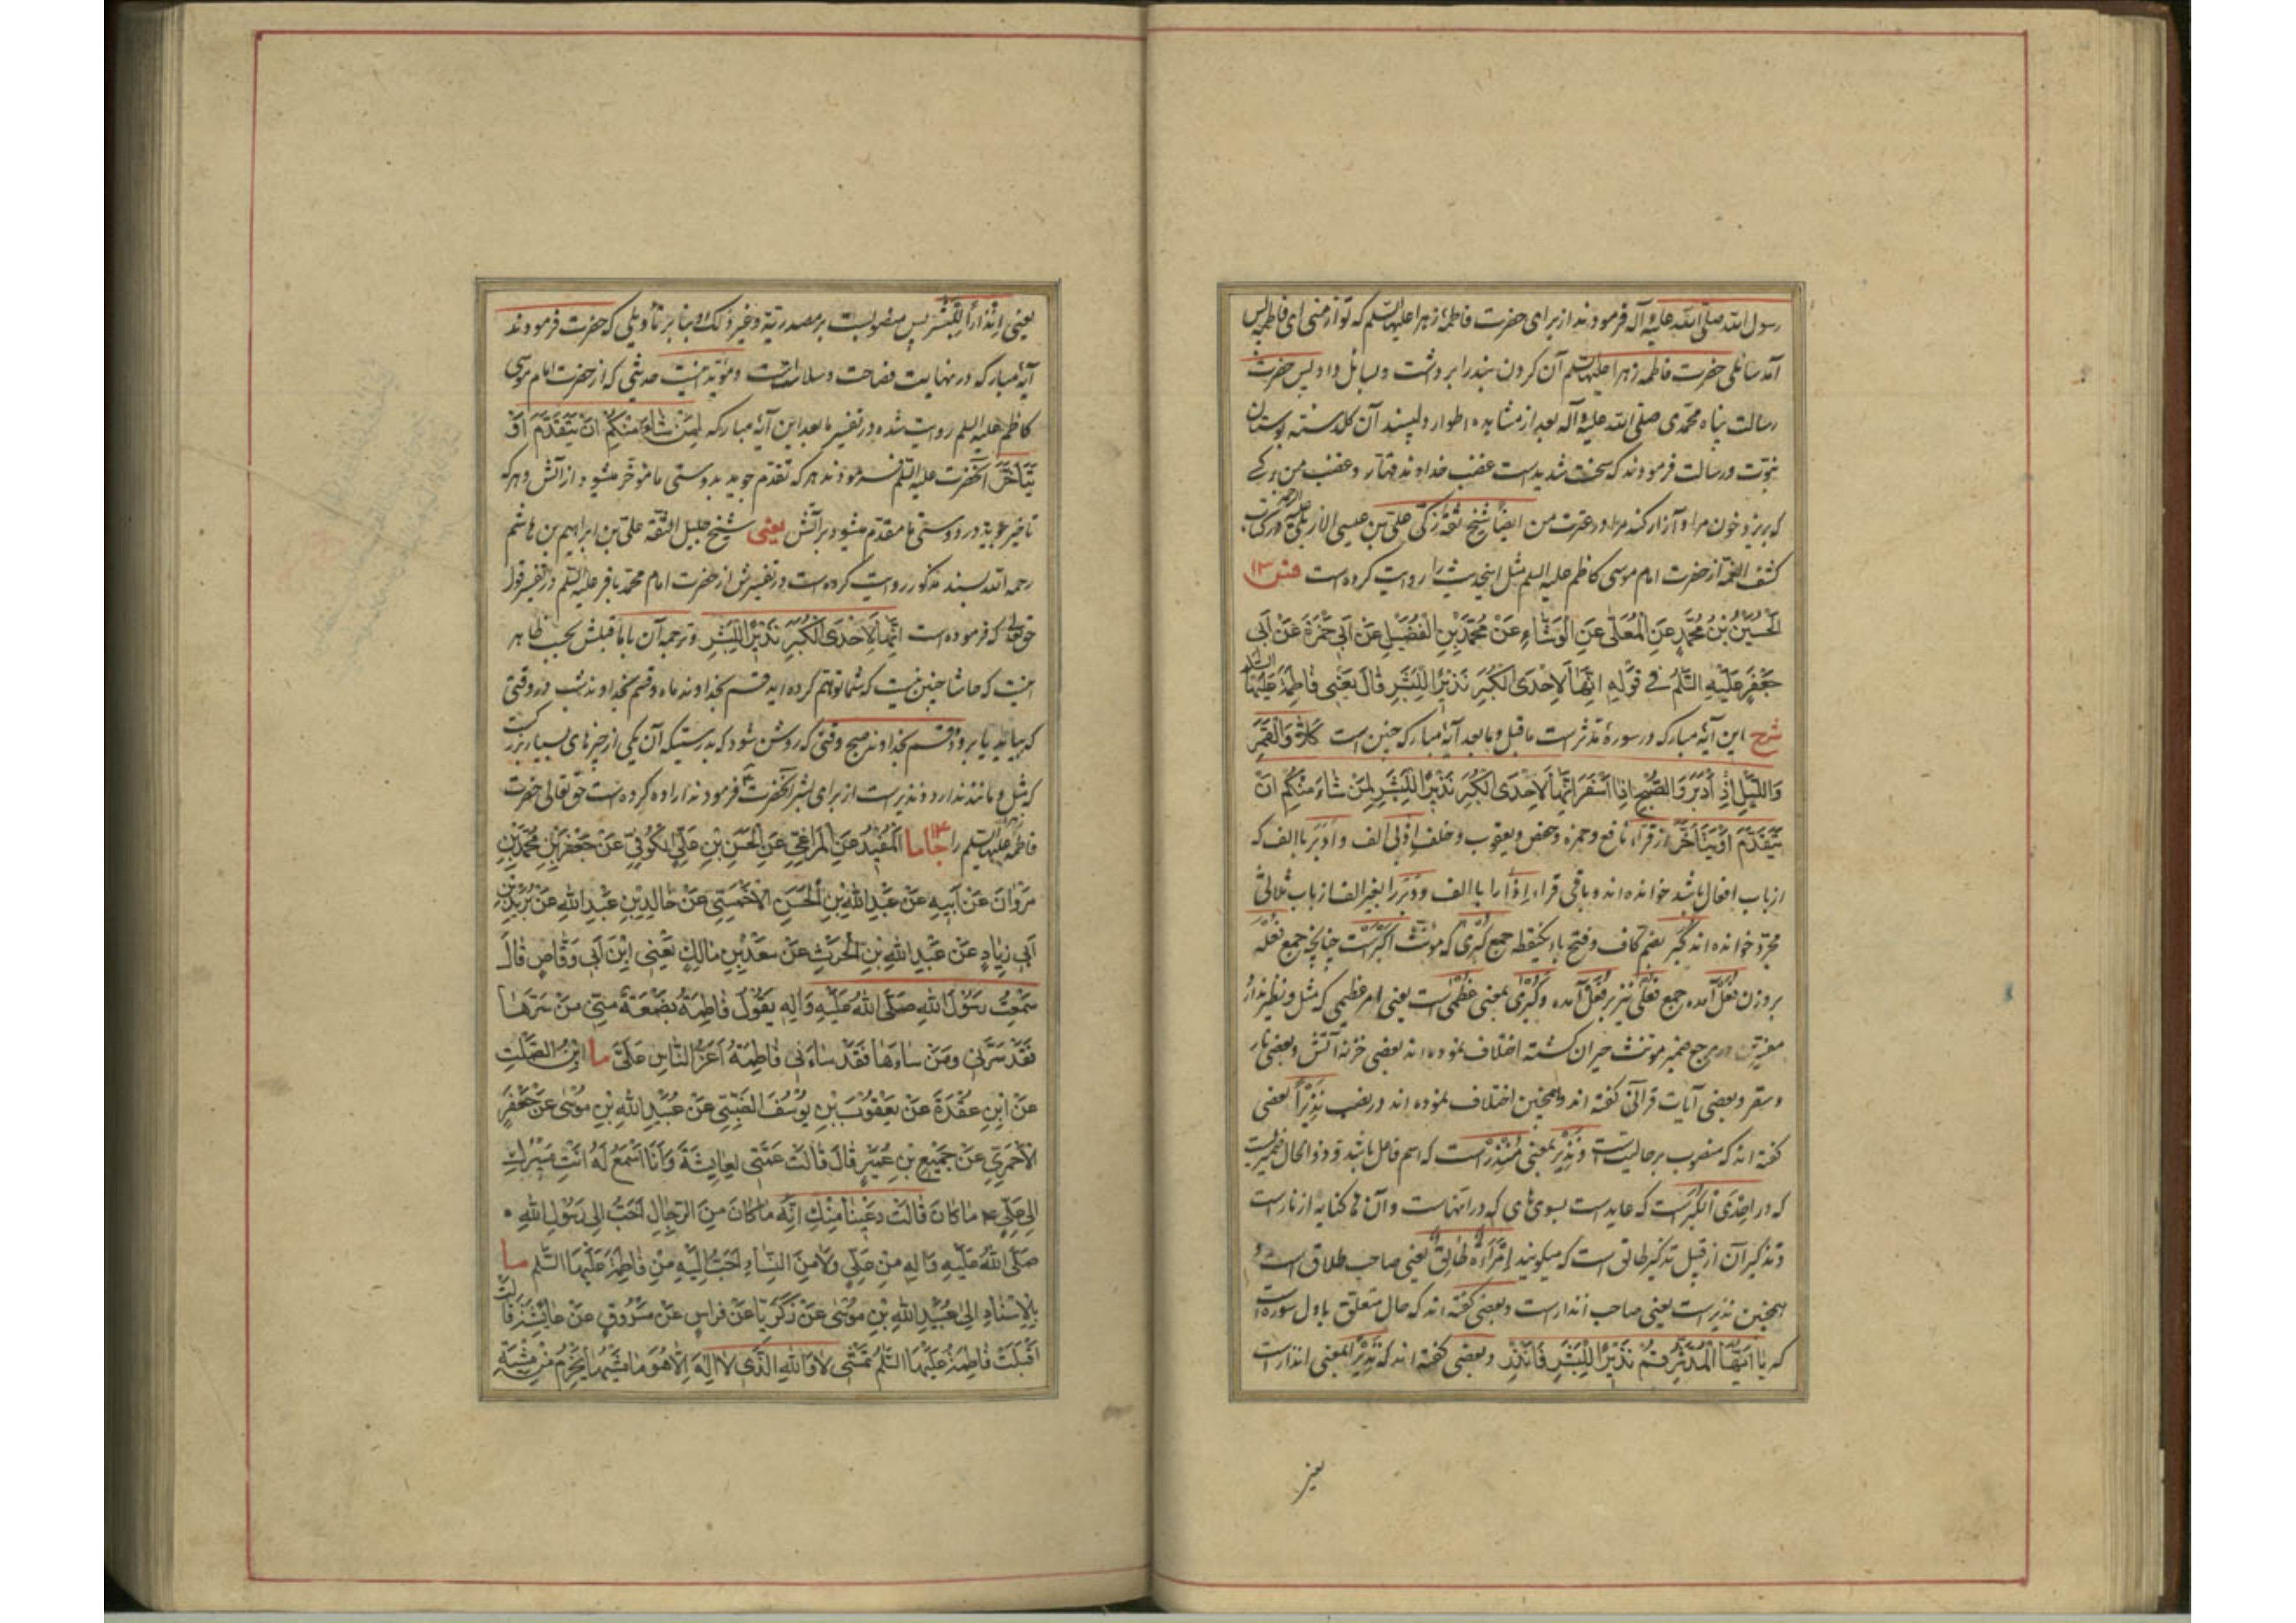 رسول الله صلی الله علیه وآله فرمودند از برای حضرت فاطمهٔ زهرا علیها السلم که تو از منی ای فاطمه پس
آمد سائلی حضرت فاطمه زهرا علیها السلم آن کردن بند را برداشت و بسائل داد پس حضرت
رسالت پناه محمدی صلی الله علیه وآله بعد از مشاهده اطوار دلپسند آن کلدسته بوستان
نبوت ورسالت فرمودند که سخت شدید است غضب خداوند قهار و غضب من بر کسی
که بریزد خون مرا و آزار کند مرا در عترت من ایضا شیخ ثقه زکی علی بن عیسی الاربلی علیه الرحمة در کتاب
کشف الغمه از حضرت امام موسی کاظم علیه السلم مثل اینحدیث را روایت کرده است فس ١٣
الْحُسَیْنُ بْنُ مُحَمَّدٍ عَنِ الْمُعَلّی عَنِ الْوَشّاءِ عَنْ مُحَمَّدِ بْنِ الْفُضَیْلِ عَنْ اَبی حَمْزَةَ عَنْ اَبی
جَعْفَرٍ عَلَیْهِ السَّلمُ فی قَوْلِهِ اِنَّها لَاِحْدَی الْکُبَرِ نَذیرًا لِلْبَشَرِ قالَ یَعْنی فاطِمَةَ عَلَیْهَا السَّلم
شرح این آیهٔ مبارکه در سورهٔ مدثر است ماقبل وما بعد آیهٔ مبارکه چنین است کَلّا وَالْقَمَرِ
وَاللَّیْلِ اِذْ اَدْبَرَ وَالصُّبْحِ اِذا اَسْفَرَ اِنَّها لَاِحْدَی الْکُبَرِ نَذیرًا لِلْبَشَرِ لِمَنْ شاءَ مِنْکُمْ اَنْ
یَتَقَدَّمَ اَوْ یَتَاَخَّرَ از قرّاء نافع و حمزه وحفص و یعقوب و خلف اِذْ بی الف و اَدْبَرَ با الف که
از باب افعال باشد خوانده اند و باقی قراء اِذا را با الف و دَبَرَ را بغیر الف از باب ثلاثی
مجرّد خوانده اند کُبَر بضم کاف و فتح باء یکنقطه جمع کُبْری که مؤنّث اکبر است چنانچه جمع فُعْلَة
بر وزن فُعَل آمده جمع فُعْلی نیز بر فُعَل آمده و کُبْری بمعنی عُظْمی است یعنی امر عظیمی که مثل و نظیر ندارد
مفسرین در مرجع ضمیر مونث حیران کشته اختلاف نموده اند بعضی خزنه آتش و بعضی نار
و سقر و بعضی آیات قرآنی کفته اند و همچنین اختلاف نموده اند در نصب نَذیرًا بعضی
کفته اند که منصوب بر حالیت است و نَذیر بمعنی مُنْذِر است که اسم فاعل باشد و ذو الحال ضمیریست
که در اِحْدَی الْکُبَر است که عاید است بسوی های که در اِنَّها است و آن ها کنایه از نار است
و تذکیر آن از قبیل تذکیر طالق است که میکویند اِمْرَأَةٌ طالِقٌ یعنی صاحب طلاق است و
همچنین نذیر است یعنی صاحب انذار است و بعضی کفته اند که حال متعلق باول سوره است
که یا اَیُّهَا الْمُدَّثِّرُ قُمْ نَذیرًا لِلْبَشَرِ فَاَنْذِرْ و بعضی کفته اند که نَذیر بمعنی انذار است
یعنی
یعنی اِنْذارًا لِلْبَشَر پس منصوبست بر مصدریّة و غیر ذلک و بنا بر تأویلی که حضرت فرمودند
آیهٔ مبارکه در نهایت فصاحت و سلاست است و مؤیّد اینست حدیثی که از حضرت امام موسی
کاظم علیه السلم روایت شده در تفسیر ما بعد این آیهٔ مبارکه لِمَنْ شاءَ مِنْکُمْ اَنْ یَتَقَدَّمَ اَوْ
یَتَاَخَّرَ آنحضرت علیه السّلم فرمودند هر که تقدم جوید بدوستی ما مؤخّر میشود از آتش و هر که
تاخیر جوید در دوستی ما مقدّم میشود بر آتش یعنی شیخ جلیل الثقة علی بن ابراهیم بن هاشم
رحمه الله بسند مذکور روایت کرده است در تفسیرش از حضرت امام محمد باقر علیه السّلم در تفسیر قول
حق تعالی که فرموده است اِنَّها لَاِحْدَی الْکُبَرِ نَذیرًا لِلْبَشَرِ و ترجمه آن با ما قبلش بحسب ظاهر
اینست که حاشا چنین نیست که شما توهّم کرده اید قسم بخداوند ماه و قسم بخداوند شب در وقتی
که بیاید یا برود و قسم بخداوند صبح وقتی که روشن شود که بدرستیکه آن یکی از چیزهای بسیار بزرگست
که مثل و مانند ندارد و نذیر است از برای بشر آنحضرت ع فرمودند اراده کرده است حق تعالی حضرت
فاطمه زهرا علیها السلم را ١٤ جا ما الْمُفیدُ عَنِ الْمَراغِیِّ عَنِ الْحَسَنِ بْنِ عَلِیٍّ الْکُوفِیِّ عَنْ جَعْفَرِ بْنِ مُحَمَّدِ بْنِ
مَرْوانَ عَنْ اَبیهِ عَنْ عَبْدِ اللهِ بْنِ الْحَسَنِ الْاَحْمَسِیِّ عَنْ خالِدِ بْنِ عَبْدِ اللهِ عَنْ یَزیدَ بْنِ
اَبی زِیادٍ عَنْ عَبْدِ اللهِ بْنِ الْحَرْثِ عَنْ سَعْدِ بْنِ مالِکٍ یَعْنی ابْنَ اَبی وَقّاصٍ قالَ
سَمِعْتُ رَسُولَ اللهِ صَلَّی اللهُ عَلَیْهِ وَالِهِ یَقُولُ فاطِمَةُ بَضْعَةٌ مِنّی مَنْ سَرَّها
فَقَدْ سَرَّنی وَمَنْ ساءَها فَقَدْ ساءَنی فاطِمَةُ اَعَزُّ النّاسِ عَلَیَّ ما ابْنُ الصَّلْتِ
عَنْ ابْنِ عُقْدَةَ عَنْ یَعْقُوبَ بْنِ یُوسُفَ الضَّبِّیِّ عَنْ عُبَیْدِ اللهِ بْنِ مُوسی عَنْ جَعْفَرٍ
الْاَحْمَرِیِّ عَنْ جُمَیْعِ بْنِ عُمَیْرٍ قالَ قالَتْ عَمَّتی لِعایِشَةَ وَاَنَا اَسْمَعُ لَهُ اَنْتِ مَسیرُکِ
اِلی عَلِیٍّ ع ما کانَ قالَتْ دَعینا مِنْکِ اِنَّهُ ما کانَ مِنَ الرِّجالِ اَحَبَّ اِلی رَسُولِ اللهِ
صَلَّی اللهُ عَلَیْهِ وَالِهِ مِنْ عَلِیٍّ وَلا مِنَ النِّساءِ اَحَبَّ اِلَیْهِ مِنْ فاطِمَةَ عَلَیْهَا السَّلم ما
بِالْاِسْنادِ اِلی عُبَیْدِ اللهِ بْنِ مُوسی عَنْ زَکَرِیّا عَنْ فِراسٍ عَنْ مَسْرُوقٍ عَنْ عایِشَةَ قالَتْ
اَقْبَلَتْ فاطِمَةُ عَلَیْهَا السَّلمُ تَمْشی لا وَاللهِ الَّذی لا اِلهَ اِلّا هُوَ ما مَشْیُها یَخْرِمُ مِنْ مِشْیَةِ